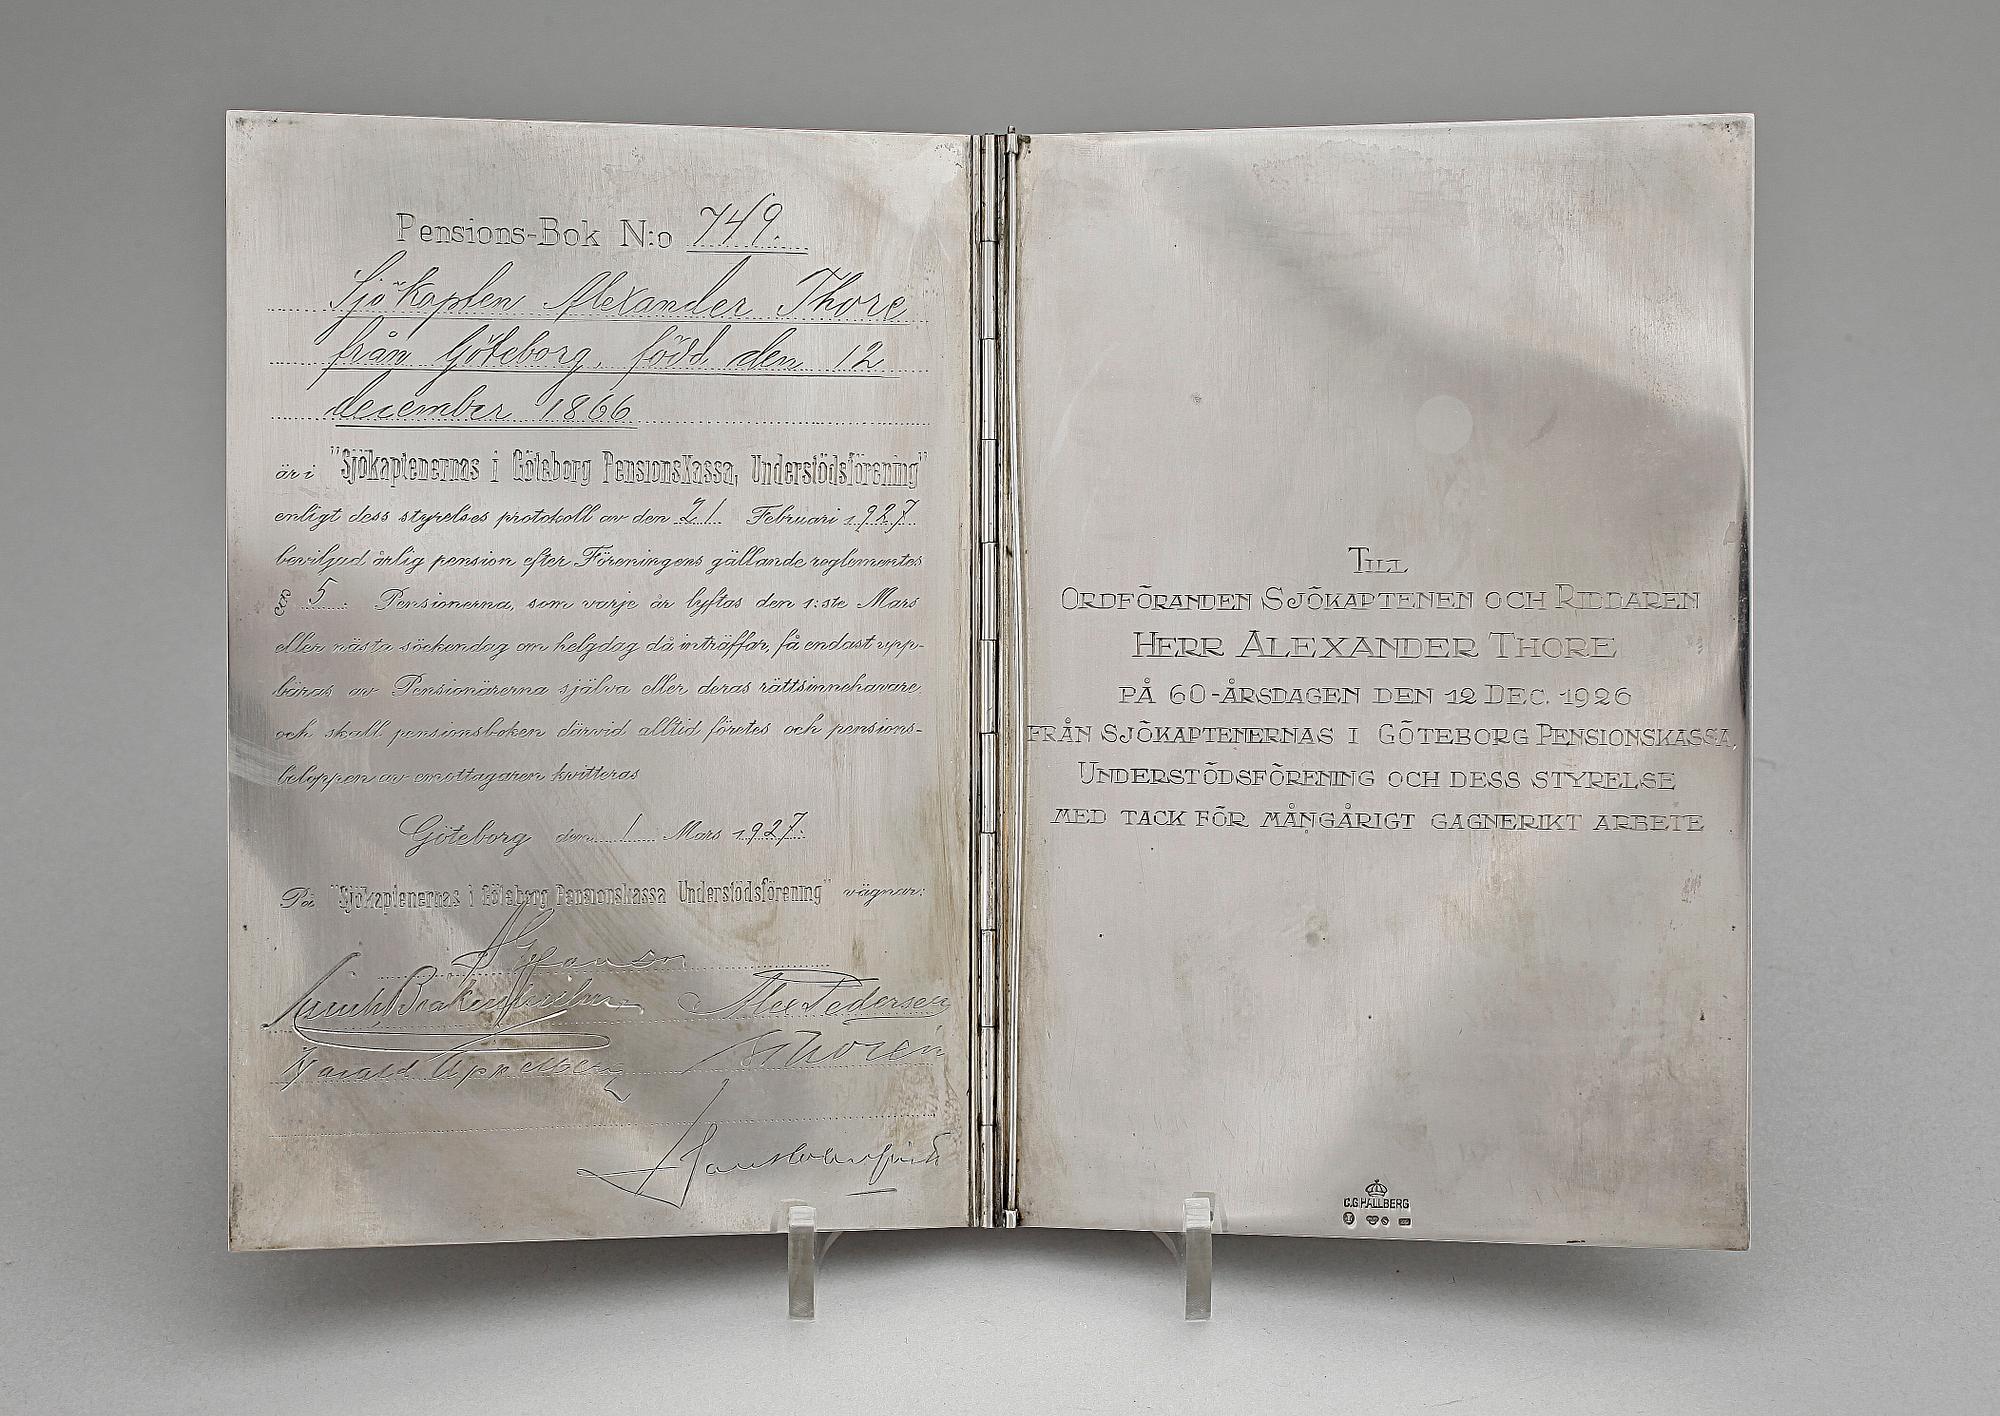 Pensions-Bok N:o 749.
Sjökapten Alexander Thore
från Göteborg, född den 12
december 1866
är i "Sjökaptenernas i Göteborg Pensionskassa, Understödsförening"
enligt dess styrelses protokoll av den 21 Februari 1927
beviljad årlig pension efter Föreningens gällande reglementes
5. Pensionerna, som varje år lyftas den 1:ste Mars
eller nästa söckendag om helgdag då inträffar, få endast upp-
bäras av Pensionärerna själva eller deras rättsinnehavare.
och skall pensionsboken därvid alltid företes och pensions-
beloppen av emottagaren kvitteras
Göteborg den 1 Mars 1927.
På "Sjökaptenernas i Göteborg Pensionskassa Understödsförening" vägnar:
Alex Pedersen
Harald Appelberg Thorén
TILL
ORDFÖRANDEN SJÖKAPTENEN OCH RIDDAREN
HERR ALEXANDER THORE
PÅ 60-ÅRSDAGEN DEN 12 DEC. 1926
FRÅN SJÖKAPTENERNAS I GÖTEBORG PENSIONSKASSA,
UNDERSTÖDSFÖRENING OCH DESS STYRELSE
MED TACK FÖR MÅNGÅRIGT GAGNERIKT ARBETE
C.G.HALLBERG